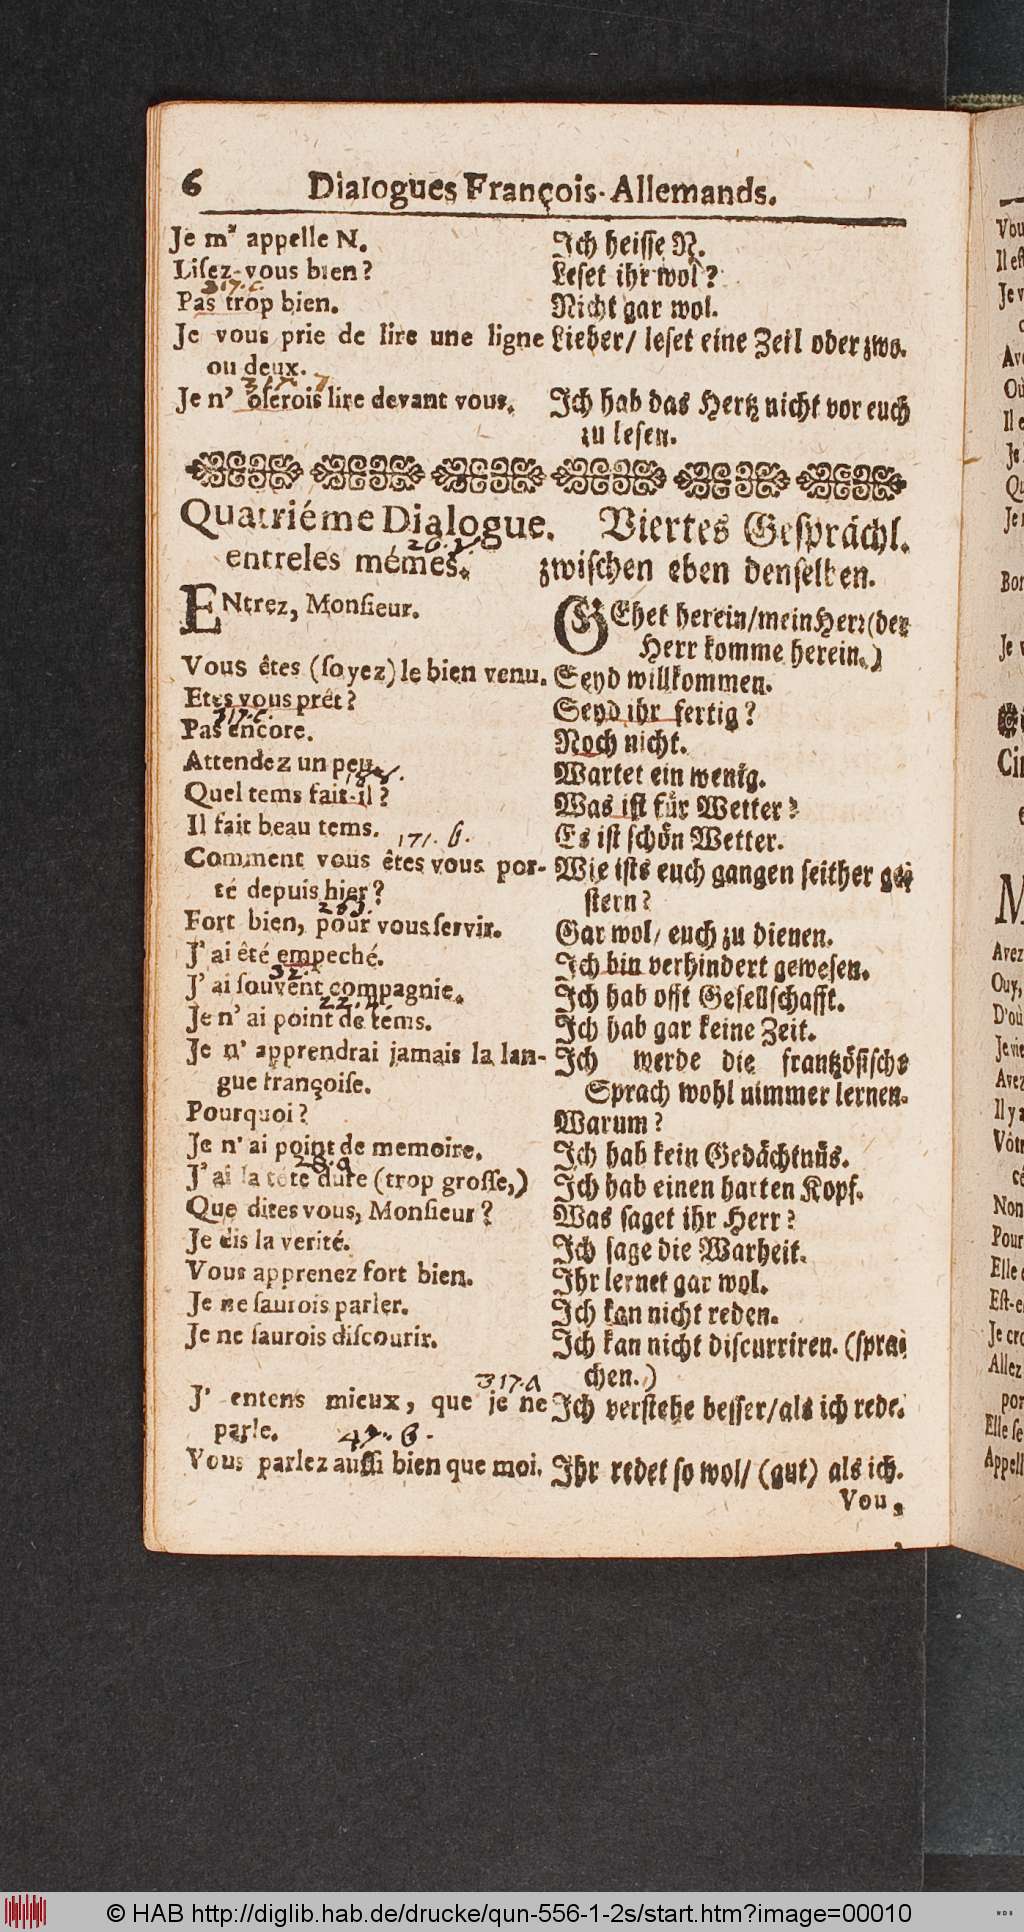 6 Dialogues François-Allemands.
Je m' appelle N.
Liſez-vous bien?
317. c.
Pas trop bien.
Je vous prie de lire une ligne
ou deux.
Je n' oſerois lire devant vous.
Ich heiſſe N.
Leſet ihr wol?
Nicht gar wol.
Lieber/ leſet eine Zeil oder zwo.
Ich hab das Hertz nicht vor euch
zu leſen.
Quatriéme Dialogue.
entreles mémes.
ENtrez, Monſieur.
Vous êtes (ſoyez) le bien venu.
Etes vous prêt?
317. c.
Pas encore.
Attendez un peu.
Quel tems fait-il?
Il fait beau tems.
171. b.
Comment vous êtes vous por-
té depuis hier?
Fort bien, pour vous ſervir.
J' ai êté empeché.
32.
J' ai ſouvent compagnie.
Je n' ai point de tems.
Je n' apprendrai jamais la lan-
gue françoiſe.
Pourquoi?
Je n' ai point de memoire.
J' ai la tête dure (trop groſſe,)
Que dites vous, Monſieur?
Je dis la verité.
Vous apprenez fort bien.
Je ne ſaurois parler.
Je ne ſaurois diſcourir.
317. a
J' entens mieux, que je ne
parle.
Vous parlez auſſi bien que moi.
Viertes Geſprächl.
zwiſchen eben denſelben.
GEhet herein/ mein Herr (der
Herr komme herein.)
Seyd willkommen.
Seyd ihr fertig?
Noch nicht.
Wartet ein wenig.
Was iſt für Wetter?
Es iſt ſchön Wetter.
Wie iſts euch gangen ſeither ge⸗
ſtern?
Gar wol/ euch zu dienen.
Ich bin verhindert geweſen.
Ich hab offt Geſellſchafft.
Ich hab gar keine Zeit.
Ich werde die frantzöſiſche
Sprach wohl nimmer lernen.
Warum?
Ich hab kein Gedächtnüs.
Ich hab einen harten Kopf.
Was ſaget ihr Herr?
Ich ſage die Warheit.
Ihr lernet gar wol.
Ich kan nicht reden.
Ich kan nicht diſcurriren. (ſpra⸗
chen.)
Ich verſtehe beſſer/ als ich rede.
Ihr redet ſo wol/ (gut) als ich.
Vou,
© HAB http://diglib.hab.de/drucke/qun-556-1-2s/start.htm?image=00010